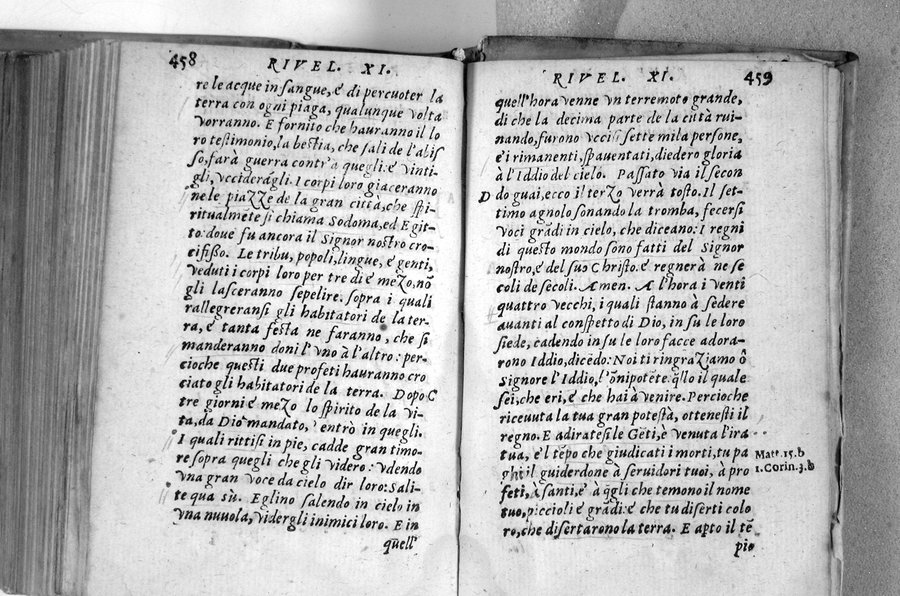 458
RIVEL. XI.
re le acque in sangue, e di percuoter la
terra con ogni piaga, qualunque volta
vorranno. E fornito che hauranno il lo
ro testimonio, la bestia, che sali de l'abis
so, farà guerra contr'a quegli: e vinti-
gli, vccideràgli. I corpi loro giaceranno
ne le piazze de la gran città, che spi-
ritualmẽte si chiama Sodoma, ed Egit-
to: doue fu ancora il Signor nostro cro-
cifisso. Le tribu, popoli, lingue, e genti,
veduti i corpi loro per tre dì e mezo, nõ
gli lasceranno sepelire. sopra i quali
rallegreransi gli habitatori de la ter-
ra, e tanta festa ne faranno, che si
manderanno doni l'vno à l'altro: per-
cioche questi due profeti hauranno cro
ciato gli habitatori de la terra. Dopo C
tre giorni e mezo lo spirito de la vi-
ta, da Dio mandato, entrò in quegli.
I quali rittisi in pie, cadde gran timo-
re sopra quegli che gli videro: vdendo
vna gran voce da cielo dir loro: Sali-
te qua sù. Eglino salendo in cielo in
vna nuuola, vidergli inimici loro. E in
quell'
RIVEL. XI.
459
quell'hora venne vn terremoto grande,
di che la decima parte de la città rui-
nando, furono vccisi sette mila persone,
e i rimanenti, spauentati, diedero gloria
à l'Iddio del cielo. Passato via il secon
D do guai, ecco il terzo verrà tosto. Il set-
timo agnolo sonando la tromba, fecersi
voci grãdi in cielo, che diceano: I regni
di questo mondo sono fatti del Signor
nostro, e del suo Christo. e regnerà ne se
coli de secoli. Amen. A l'hora i venti
quattro vecchi, i quali stanno à sedere
auanti al conspetto di Dio, in su le loro
siede, cadendo in su le loro facce adora-
rono Iddio, dicẽdo: Noi ti ringraziamo ô
Signore l'Iddio, l'õnipotẽte. q̃llo il quale
sei, che eri, e che hai à venire. Percioche
riceuuta la tua gran potestà, ottenesti il
regno. E adiratesi le Gẽti, è venuta l'ira
tua, e'l tẽpo che giudicati i morti, tu pa
ghi il guiderdone à seruidori tuoi, à pro
feti, à santi, e à q̃gli che temono il nome
tuo, piccioli e grãdi: e che tu diserti colo
ro, che disertarono la terra. E apto il tẽ
pio
Matt. 15. b
1. Corin. 3. b